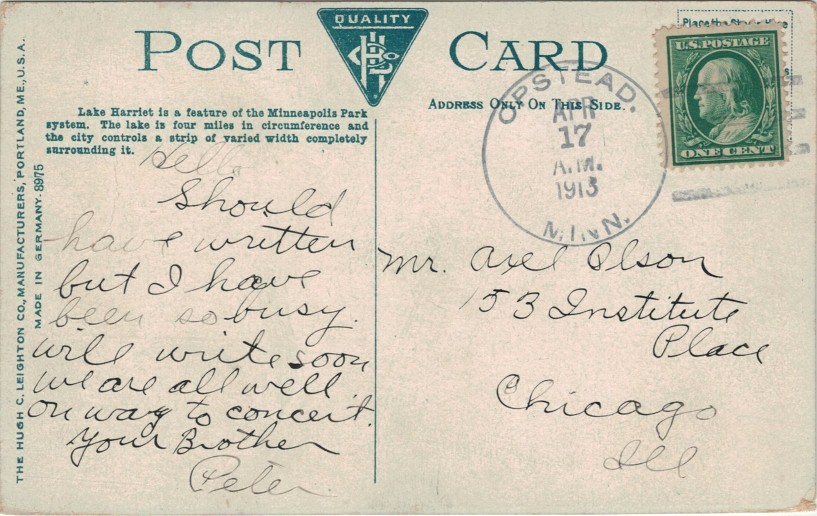 QUALITY
POST CARD
Place the Stamp Here
Lake Harriet is a feature of the Minneapolis Park
system. The lake is four miles in circumference and
the city controls a strip of varied width completely
surrounding it.
ADDRESS ONLY ON THIS SIDE.
OPSTEAD.
APR
17
A.M.
1913
MINN.
U.S. POSTAGE
ONE CENT
THE HUGH C. LEIGHTON CO., MANUFACTURERS, PORTLAND, ME., U.S.A.
MADE IN GERMANY. 8975
Hello
Should
have written
but I have
been so busy.
will write soon
we are all well
on way to concert.
Your Brother
Peter
Mr. Axel Olson
153 Institute
Place
Chicago
Ill